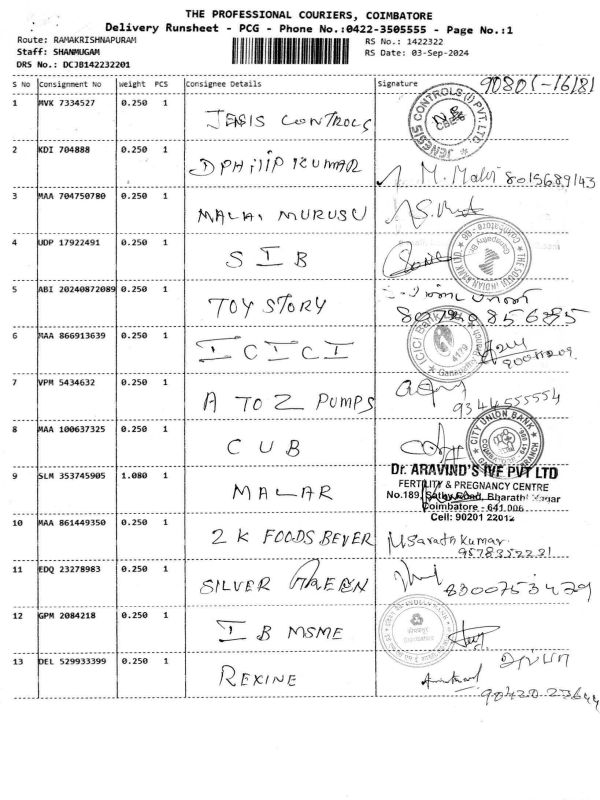 THE PROFESSIONAL COURIERS, COIMBATORE
Delivery Runsheet - PCG - Phone No.:0422-3505555 - Page No.:1
Route: RAMAKRISHNAPURAM
RS No.: 1422322
Staff: SHANMUGAM
RS Date: 03-Sep-2024
DRS No.: DCJB142232201
S No Consignment No Weight PCS Consignee Details Signature
1 MVK 7334527 0.250 1 JENSIS CONTROLS
JENESIS CONTROLS (I) PVT. LTD.
2 KDI 704888 0.250 1 DPHILIP KUMAR M. Malri 8015689143
3 MAA 704750780 0.250 1 MALAI MURUSU
4 UDP 17922491 0.250 1 SIB
THE SOUTH INDIAN BANK
5 ABI 20240872089 0.250 1 TOY STORY
6 MAA 866913639 0.250 1 ICICI
ICICI Bank
7 VPM 5434632 0.250 1 A TO Z PUMPS 9344555554
8 MAA 100637325 0.250 1 CUB
CITY UNION BANK
9 SLM 353745905 1.080 1 MALAR
Dr. ARAVIND'S IVF PVT LTD
FERTILITY & PREGNANCY CENTRE
No.189, Sathy Road, Bharathi Nagar
Coimbatore - 641 006
Cell: 90201 22012
10 MAA 861449350 0.250 1 2 K FOODS BEVER M Sarath Kumar
9578352221
11 EDQ 23278983 0.250 1 SILVER GREEN 8300753429
12 GPM 2084218 0.250 1 I B MSME
13 DEL 529933399 0.250 1 REXINE